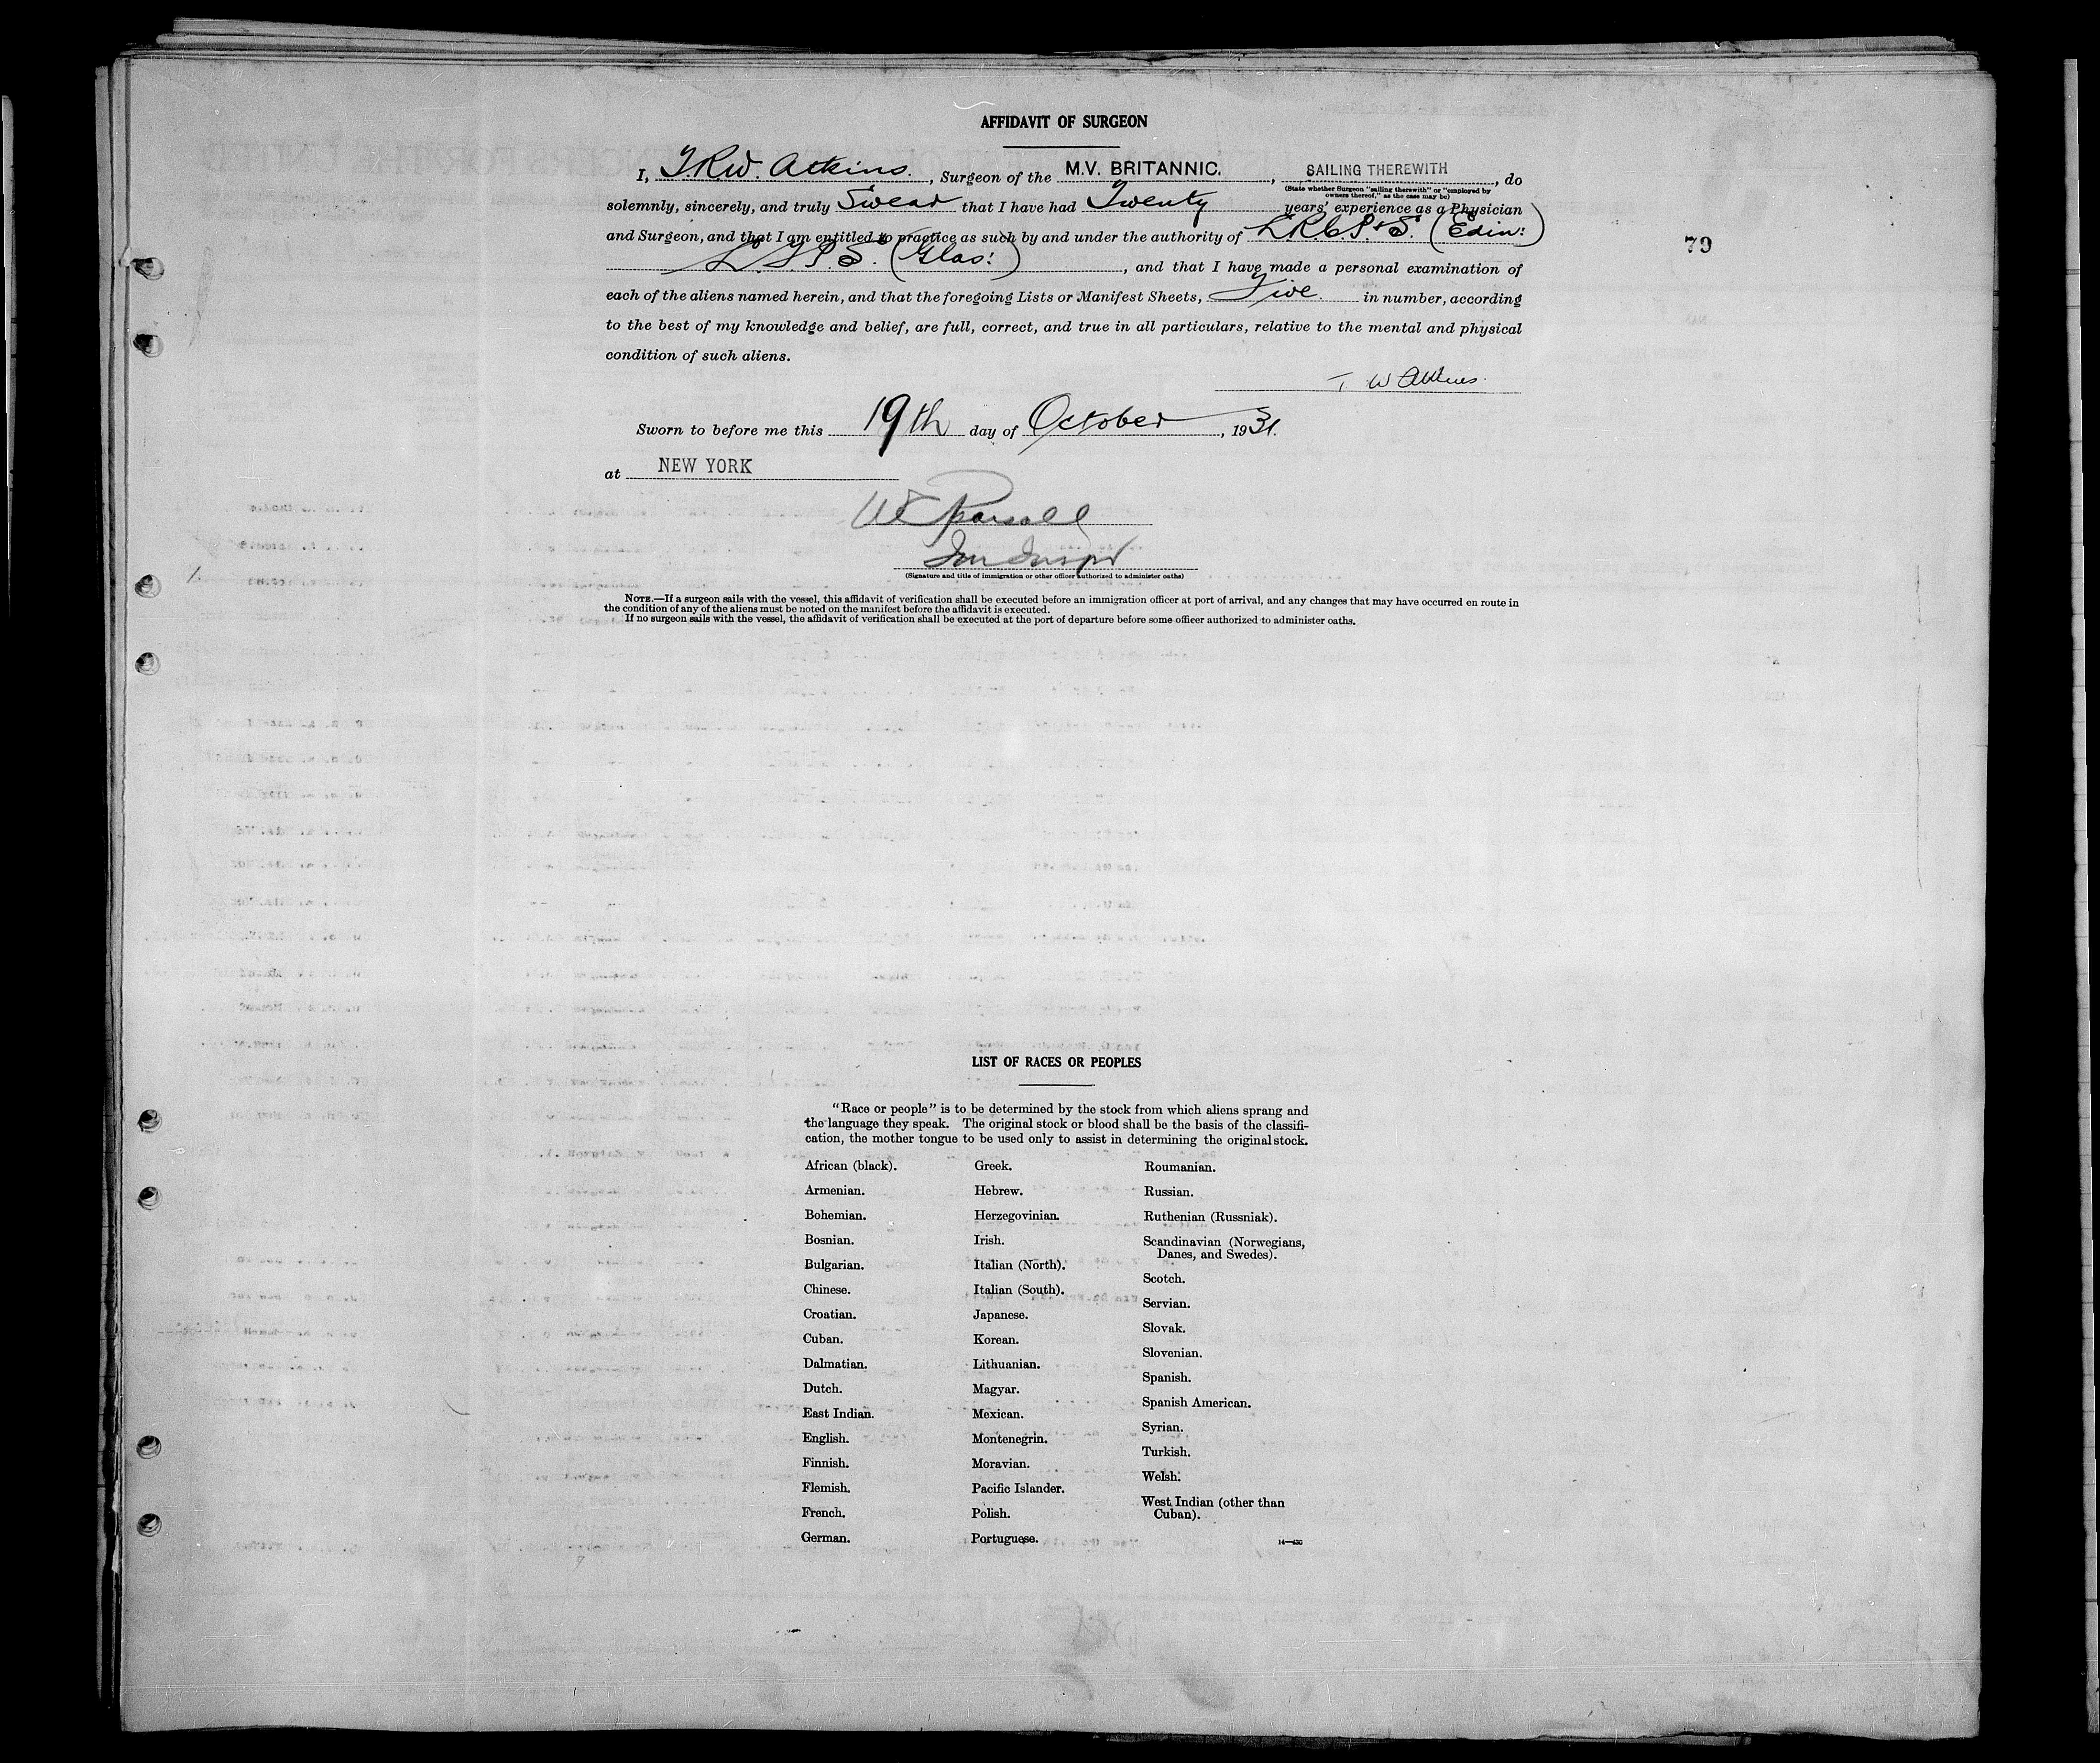 AFFIDAVIT OF SURGEON
I, T.R.W. Atkins. , Surgeon of the M.V. BRITANNIC. , SAILING THEREWITH , do
(State whether Surgeon "sailing therewith" or "employed by
owners thereof," as the case may be)
solemnly, sincerely, and truly Swear that I have had Twenty years' experience as a Physician
and Surgeon, and that I am entitled to practice as such by and under the authority of L.R.C.P.&S. (Edin:)
L.F.P.S. (Glas:) , and that I have made a personal examination of
79
each of the aliens named herein, and that the foregoing Lists or Manifest Sheets, Five in number, according
to the best of my knowledge and belief, are full, correct, and true in all particulars, relative to the mental and physical
condition of such aliens.
T W Atkins.
Sworn to before me this 19th day of October , 1931.
at NEW YORK
Imm Inspr
(Signature and title of immigration or other officer authorized to administer oaths)
NOTE.—If a surgeon sails with the vessel, this affidavit of verification shall be executed before an immigration officer at port of arrival, and any changes that may have occurred en route in
the condition of any of the aliens must be noted on the manifest before the affidavit is executed.
If no surgeon sails with the vessel, the affidavit of verification shall be executed at the port of departure before some officer authorized to administer oaths.
LIST OF RACES OR PEOPLES
"Race or people" is to be determined by the stock from which aliens sprang and
the language they speak. The original stock or blood shall be the basis of the classifi-
cation, the mother tongue to be used only to assist in determining the original stock.
African (black).
Armenian.
Bohemian.
Bosnian.
Bulgarian.
Chinese.
Croatian.
Cuban.
Dalmatian.
Dutch.
East Indian.
English.
Finnish.
Flemish.
French.
German.
Greek.
Hebrew.
Herzegovinian.
Irish.
Italian (North).
Italian (South).
Japanese.
Korean.
Lithuanian.
Magyar.
Mexican.
Montenegrin.
Moravian.
Pacific Islander.
Polish.
Portuguese.
Roumanian.
Russian.
Ruthenian (Russniak).
Scandinavian (Norwegians,
Danes, and Swedes).
Scotch.
Servian.
Slovak.
Slovenian.
Spanish.
Spanish American.
Syrian.
Turkish.
Welsh.
West Indian (other than
Cuban).
14—430